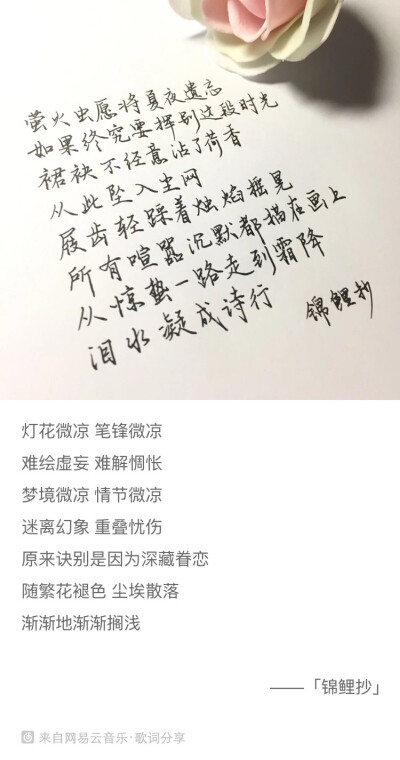 萤火虫愿将夏夜遗忘
如果终究要挥别这段时光
裙袂不经意沾了荷香
从此坠入尘网
屐齿轻踩着烛焰摇晃
所有喧嚣沉默都描在画上
从惊蛰一路走到霜降
泪水凝成诗行
锦鲤抄
灯花微凉 笔锋微凉
难绘虚妄 难解惆怅
梦境微凉 情节微凉
迷离幻象 重叠忧伤
原来诀别是因为深藏眷恋
随繁花褪色 尘埃散落
渐渐地渐渐搁浅
——「锦鲤抄」
来自网易云音乐·歌词分享